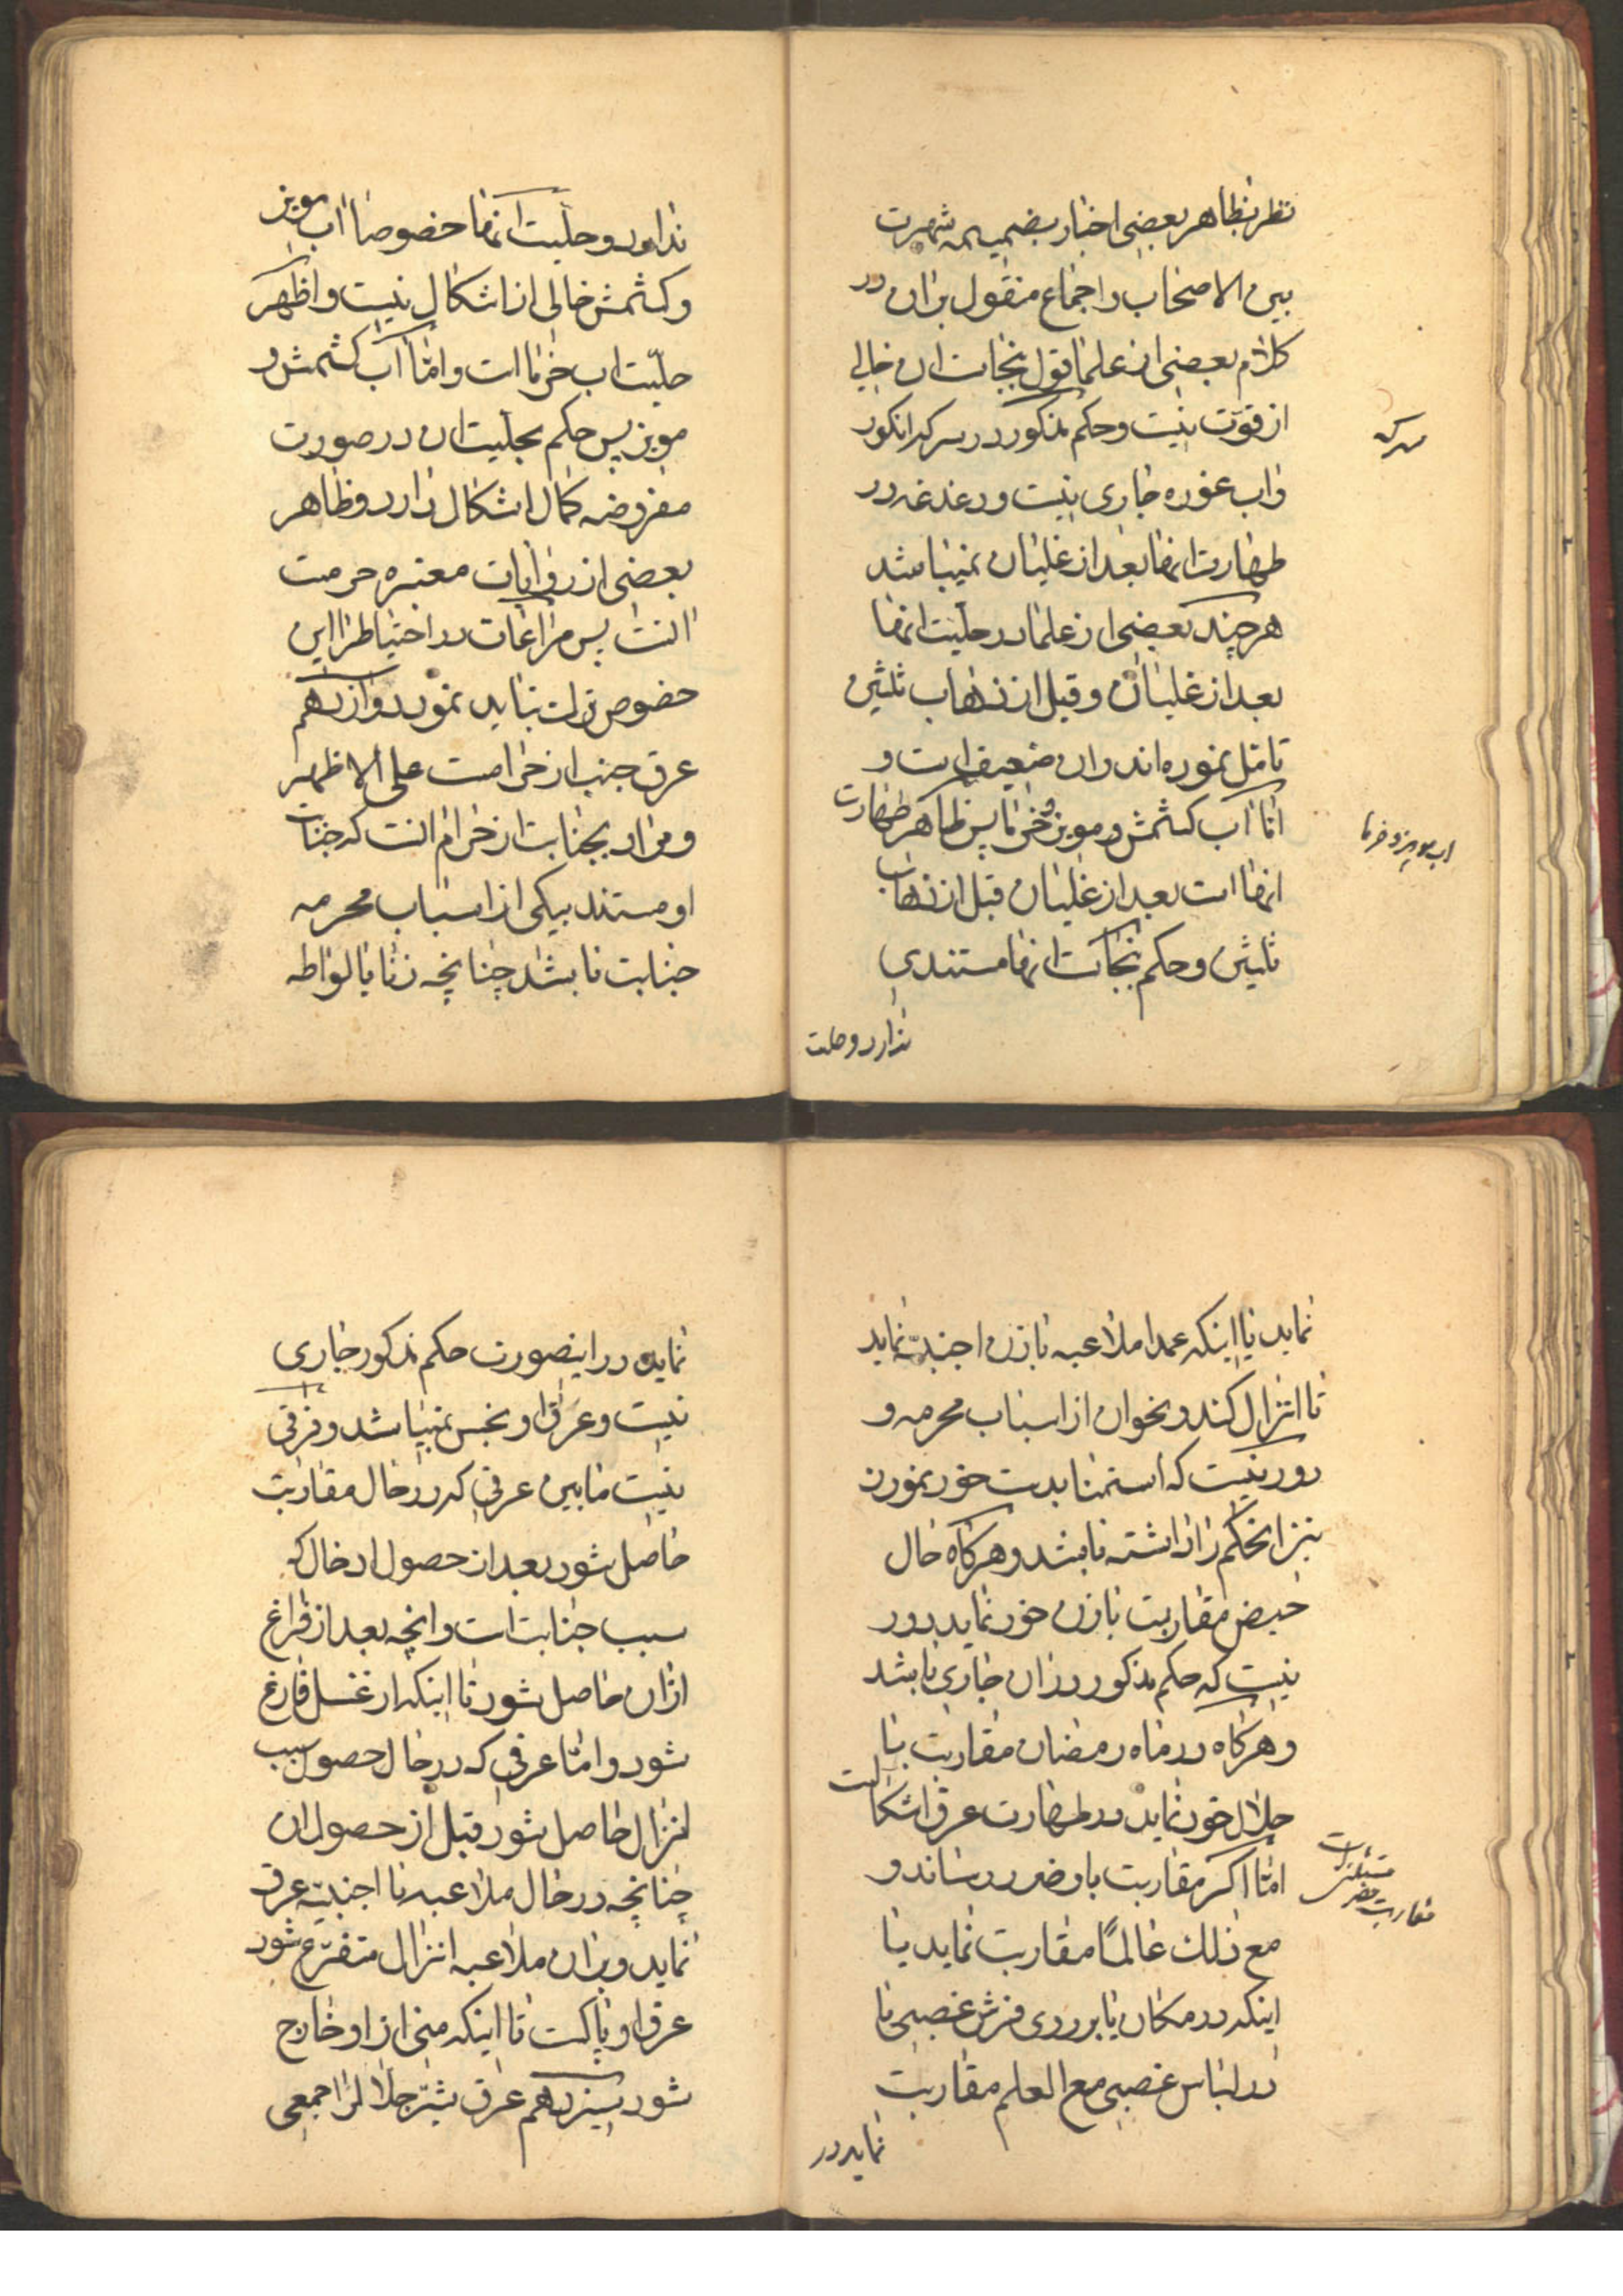 نظر بظاهر بعضی اخبار بضمیمه شهرت
بین الاصحاب و اجماع منقول بر ان در
کلام بعضی از علما قول بنجاست ان خالی
از قوت نیست و حکم مذکور در سرکه انکور
سرکه
و اب غوره جاری نیست و دغدغه در
طهارت انها بعد از غلیان نمیباشد
هر چند بعضی از علما در حلیت انها
بعد از غلیان و قبل از ذهاب ثلثین
تامل نموده اند و ان ضعیف است و
اما اب کشمش و مویز و خرما پس ظاهر طهارت
اب مویز و خرما
انها است بعد از غلیان قبل از ذهاب
ثلثین و حکم بنجاست انها مستندی
ندارد و حلیت
ندارد و حلیت انها خصوصا اب مویز
و کشمش خالی از اشکال نیست و اظهر
حلیت اب خرما است و اما اب کشمش و
مویز پس حکم بحلیت ان در صورت
مفروضه کمال اشکال دارد و ظاهر
بعضی از روایات معتبره حرمت
انست پس مراعات احتیاط را در این
خصوص ترک نباید نمود دوازدهم
عرق جنب از حرامست علی الاظهر
و مراد بجنابت از حرام انست که جنابت
او مستند بیکی از اسباب محرمه
جنابت باشد چنانچه زنا یا لواطه
نماید یا اینکه عمدا ملاعبه با زن اجنبیه نماید
تا انزال کند و نحو ان از اسباب محرمه و
دور نیست که استمنا بدست خود نمودن
نیز این حکم را داشته باشد و هر کاه حال
حیض مقاربت با زن خود نماید دور
نیست که حکم مذکور در ان جاری باشد
و هر کاه در ماه رمضان مقاربت با
حلال خود نماید در طهارت عرق اشکالست
اما اکر مقاربت باو ضرر رساند و
مقاربت مضر
مع ذلک عالمًا مقاربت نماید یا
اینکه در مکان یا بر روی فرش غصبی یا
در لباس غصبی مع العلم مقاربت
نماید در
نماید در اینصورت حکم مذکور جاری
نیست و عرق او نجس نمیباشد و فرقی
نیست مابین عرقی که در حال مقاربت
حاصل شود بعد از حصول ادخال که
سبب جنابت است و انچه بعد از فراغ
از ان حاصل شود تا اینکه از غسل فارغ
شود و اما عرقی که در حال حصول سبب
انزال حاصل شود قبل از حصول ان
چنانچه در حال ملاعبه با اجنبیه عرق
نماید و بر ان ملاعبه انزال متفرع شود
عرق او پاکست تا اینکه منی از او خارج
شود سیزدهم عرق شتر جلال را جمعی